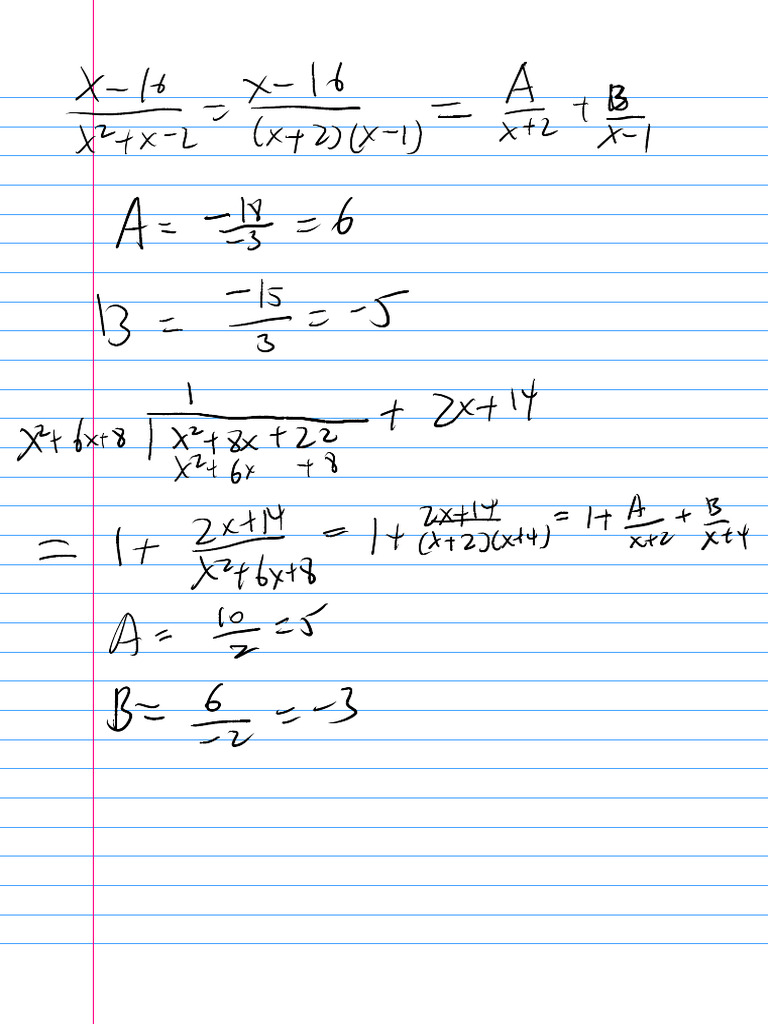 \frac{x-16}{x^2+x-2} = \frac{x-16}{(x+2)(x-1)} = \frac{A}{x+2} + \frac{B}{x-1}
A = \frac{-18}{-3} = 6
B = \frac{-15}{3} = -5
1
x^2+6x+8 | x^2+8x+22 + 2x+14
x^2+6x +8
= 1 + \frac{2x+14}{x^2+6x+8} = 1 + \frac{2x+14}{(x+2)(x+4)} = 1 + \frac{A}{x+2} + \frac{B}{x+4}
A = \frac{10}{2} = 5
B = \frac{6}{-2} = -3